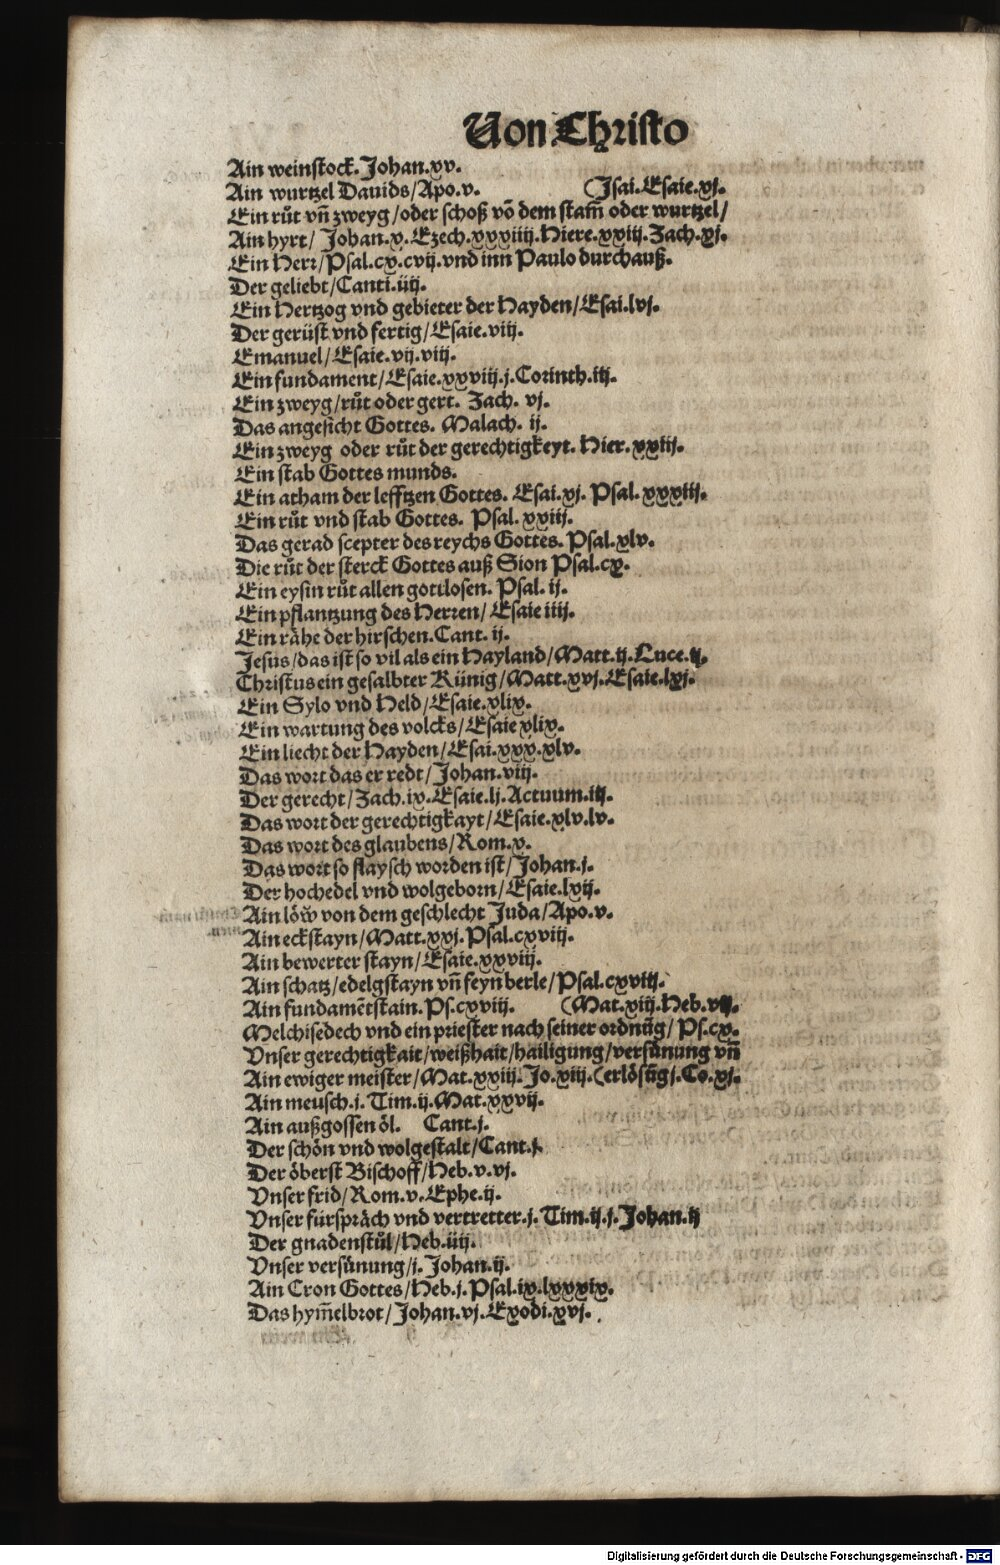 Von Christo
Ain weinstock. Johan.xv.
Ain wurtzel Dauids/Apo.v. (Jsai.Esaie.xj.
Ein růt vñ zweyg/oder schoß vō dem stam̄ oder wurtzel/
Ain hyrt/ Johan.x.Ezech.xxxiiij.Hiere.xxiij.Zach.xj.
Ein Herr/Psal.cx.cvij.vnd inn Paulo durchauß.
Der geliebt/Canti.iiij.
Ein Hertzog vnd gebieter der Hayden/Esai.lvj.
Der gerüst vnd fertig/Esaie.viij.
Emanuel/Esaie.vij.viij.
Ein fundament/Esaie.xxviij.j.Corinth.iij.
Ein zweyg/růt oder gert. Zach. vj.
Das angesicht Gottes. Malach. ij.
Ein zweyg oder růt der gerechtigkeyt. Hier.xxiij.
Ein stab Gottes munds.
Ein atham der lefftzen Gottes. Esai.xj. Psal.xxxiij.
Ein růt vnd stab Gottes. Psal.xxiij.
Das gerad scepter des reychs Gottes. Psal.xlv.
Die růt der sterck Gottes auß Sion Psal.cx.
Ein eysin růt allen gottlosen. Psal. ij.
Ein pflantzung des Herren/ Esaie iiij.
Ein rähe der hirschen.Cant. ij.
Jesus/das ist so vil als ein Hayland/Matt.ij.Luce.ij.
Christus ein gesalbter Künig/Matt.xvj.Esaie.lxj.
Ein Sylo vnd Held/Esaie.xlix.
Ein wartung des volcks/Esaie xlix.
Ein liecht der Hayden/Esai.xxx.xlv.
Das wort das er redt/Johan.viij.
Der gerecht/Zach.ix.Esaie.lj.Actuum.iij.
Das wort der gerechtigkayt/Esaie.xlv.lv.
Das wort des glaubens/Rom.x.
Das wort so flaysch worden ist/Johan.j.
Der hochedel vnd wolgeborn/Esaie.lxij.
Ain löw von dem geschlecht Juda/Apo.v.
Ain eckstayn/Matt.xxj.Psal.cxviij.
Ain bewerter stayn/Esaie.xxviij.
Ain schatz/edelgstayn vñ feyn berle/Psal.cxviij.
Ain fundamētstain.Ps.cxviij. (Mat.xiij.Heb.vij.
Melchisedech vnd ein priester nach seiner ordnūg/Ps.cx.
Vnser gerechtigkait/weißhait/hailigung/versůnung vñ
Ain ewiger meister/Mat.xxiij.Jo.xiij.(erlösūg j.Co.xj.
Ain meusch.j.Tim.ij.Mat.xxvij.
Ain außgossen öl. Cant.j.
Der schön vnd wolgestalt/Cant.j.
Der öberst Bischoff/Heb.v.vj.
Vnser frid/Rom.v.Ephe.ij.
Vnser fürspräch vnd vertretter.j.Tim.ij.j.Johan.ij
Der gnadenstůl/Heb.iiij.
Vnser versůnung/j.Johan.ij.
Ain Cron Gottes/Heb.j.Psal.ix.lxxxix.
Das hym̄elbrot/Johan.vj.Exodi.xvj.
Digitalisierung gefördert durch die Deutsche Forschungsgemeinschaft - DFG